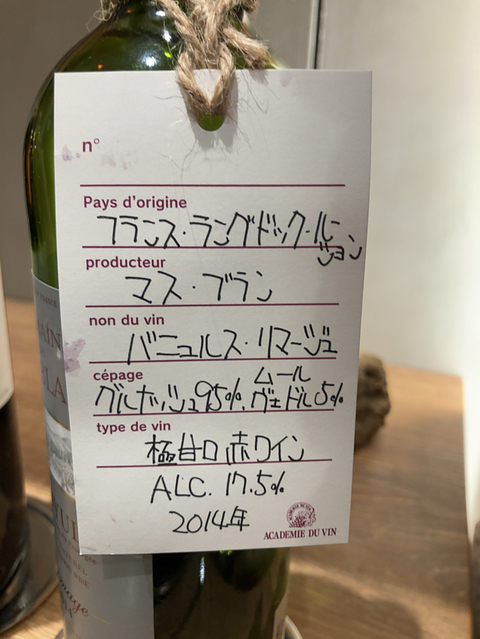 n°
Pays d'origine
フランス・ラングドック・ルーション
producteur
マス・ブラン
non du vin
バニュルス・リマージュ
cépage
グルナッシュ95%、ムールヴェドル5%
type de vin
極甘口赤ワイン
ALC. 17.5%
2014年
ACADEMIE DU VIN